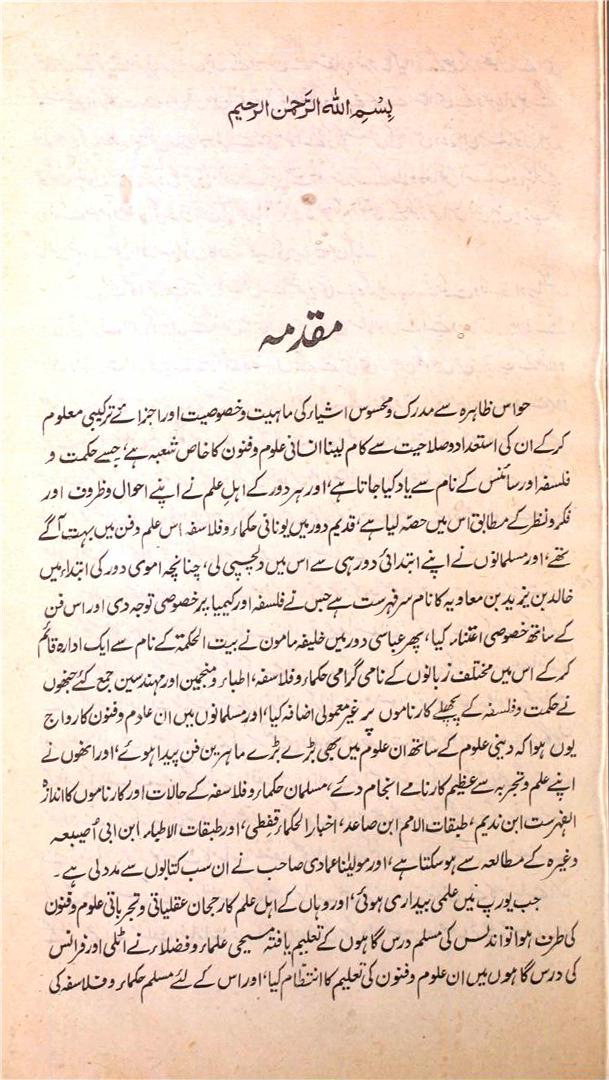 بِسْمِ اللہ الرَّحمٰن الرحیم
مقدمہ
حواس ظاہرہ سے مدرک و محسوس اشیار کی ماہیت و خصوصیت اور اجزائے ترکیبی معلوم
کر کے ان کی استعداد و صلاحیت سے کام لینا انسانی علوم و فنون کا خاص شعبہ ہے، جسے حکمت و
فلسفہ اور سائنس کے نام سے یاد کیا جاتا ہے، اور ہر دور کے اہلِ علم نے اپنے احوال و ظروف اور
فکر و نظر کے مطابق اس میں حصّہ لیا ہے، قدیم دور میں یونانی حکماء و فلاسفہ اس علم و فن میں بہت آگے
تھے، اور مسلمانوں نے اپنے ابتدائی دور ہی سے اس میں دلچسپی لی، چنانچہ اموی دور کی ابتداء میں
خالد بن یزید بن معاویہ کا نام سر فہرست ہے جس نے فلسفہ اور کیمیا پر خصوصی توجہ دی اور اس فن
کے ساتھ خصوصی اعتناء کیا، پھر عباسی دور میں خلیفہ مامون نے بیت الحکمۃ کے نام سے ایک ادارہ قائم
کر کے اس میں مختلف زبانوں کے نامی گرامی حکماء و فلاسفہ، اطباء و منجمین اور مہندسین جمع کئے جنھوں
نے حکمت و فلسفہ کے پچھلے کارناموں پر غیر معمولی اضافہ کیا، اور مسلمانوں میں ان علوم و فنون کا رواج
یوں ہوا کہ دینی علوم کے ساتھ ان علوم میں بھی بڑے بڑے ماہرین فن پیدا ہوئے، اور انھوں نے
اپنے علم و تجربہ سے عظیم کارنامے انجام دئے، مسلمان حکماء و فلاسفہ کے حالات اور کارناموں کا اندازہ
الفہرست ابن ندیم، طبقات الامم ابن صاعد، اخبار الحکماء قفطی، اور طبقات الاطباء ابن ابی اُصیبعہ
وغیرہ کے مطالعہ سے ہو سکتا ہے، اور مولینا عمادی صاحب نے ان سب کتابوں سے مدد لی ہے۔
جب یورپ میں علمی بیداری ہوئی، اور وہاں کے اہل علم کا رجحان عقلیاتی و تجرباتی علوم و فنون
کی طرف ہوا تو اندلس کی مسلم درس گاہوں کے تعلیم یافتہ مسیحی علماء و فضلاء نے اٹلی اور فرانس
کی درس گاہوں میں ان علوم و فنون کی تعلیم کا انتظام کیا، اور اس کے لئے مسلم حکماء و فلاسفہ کی